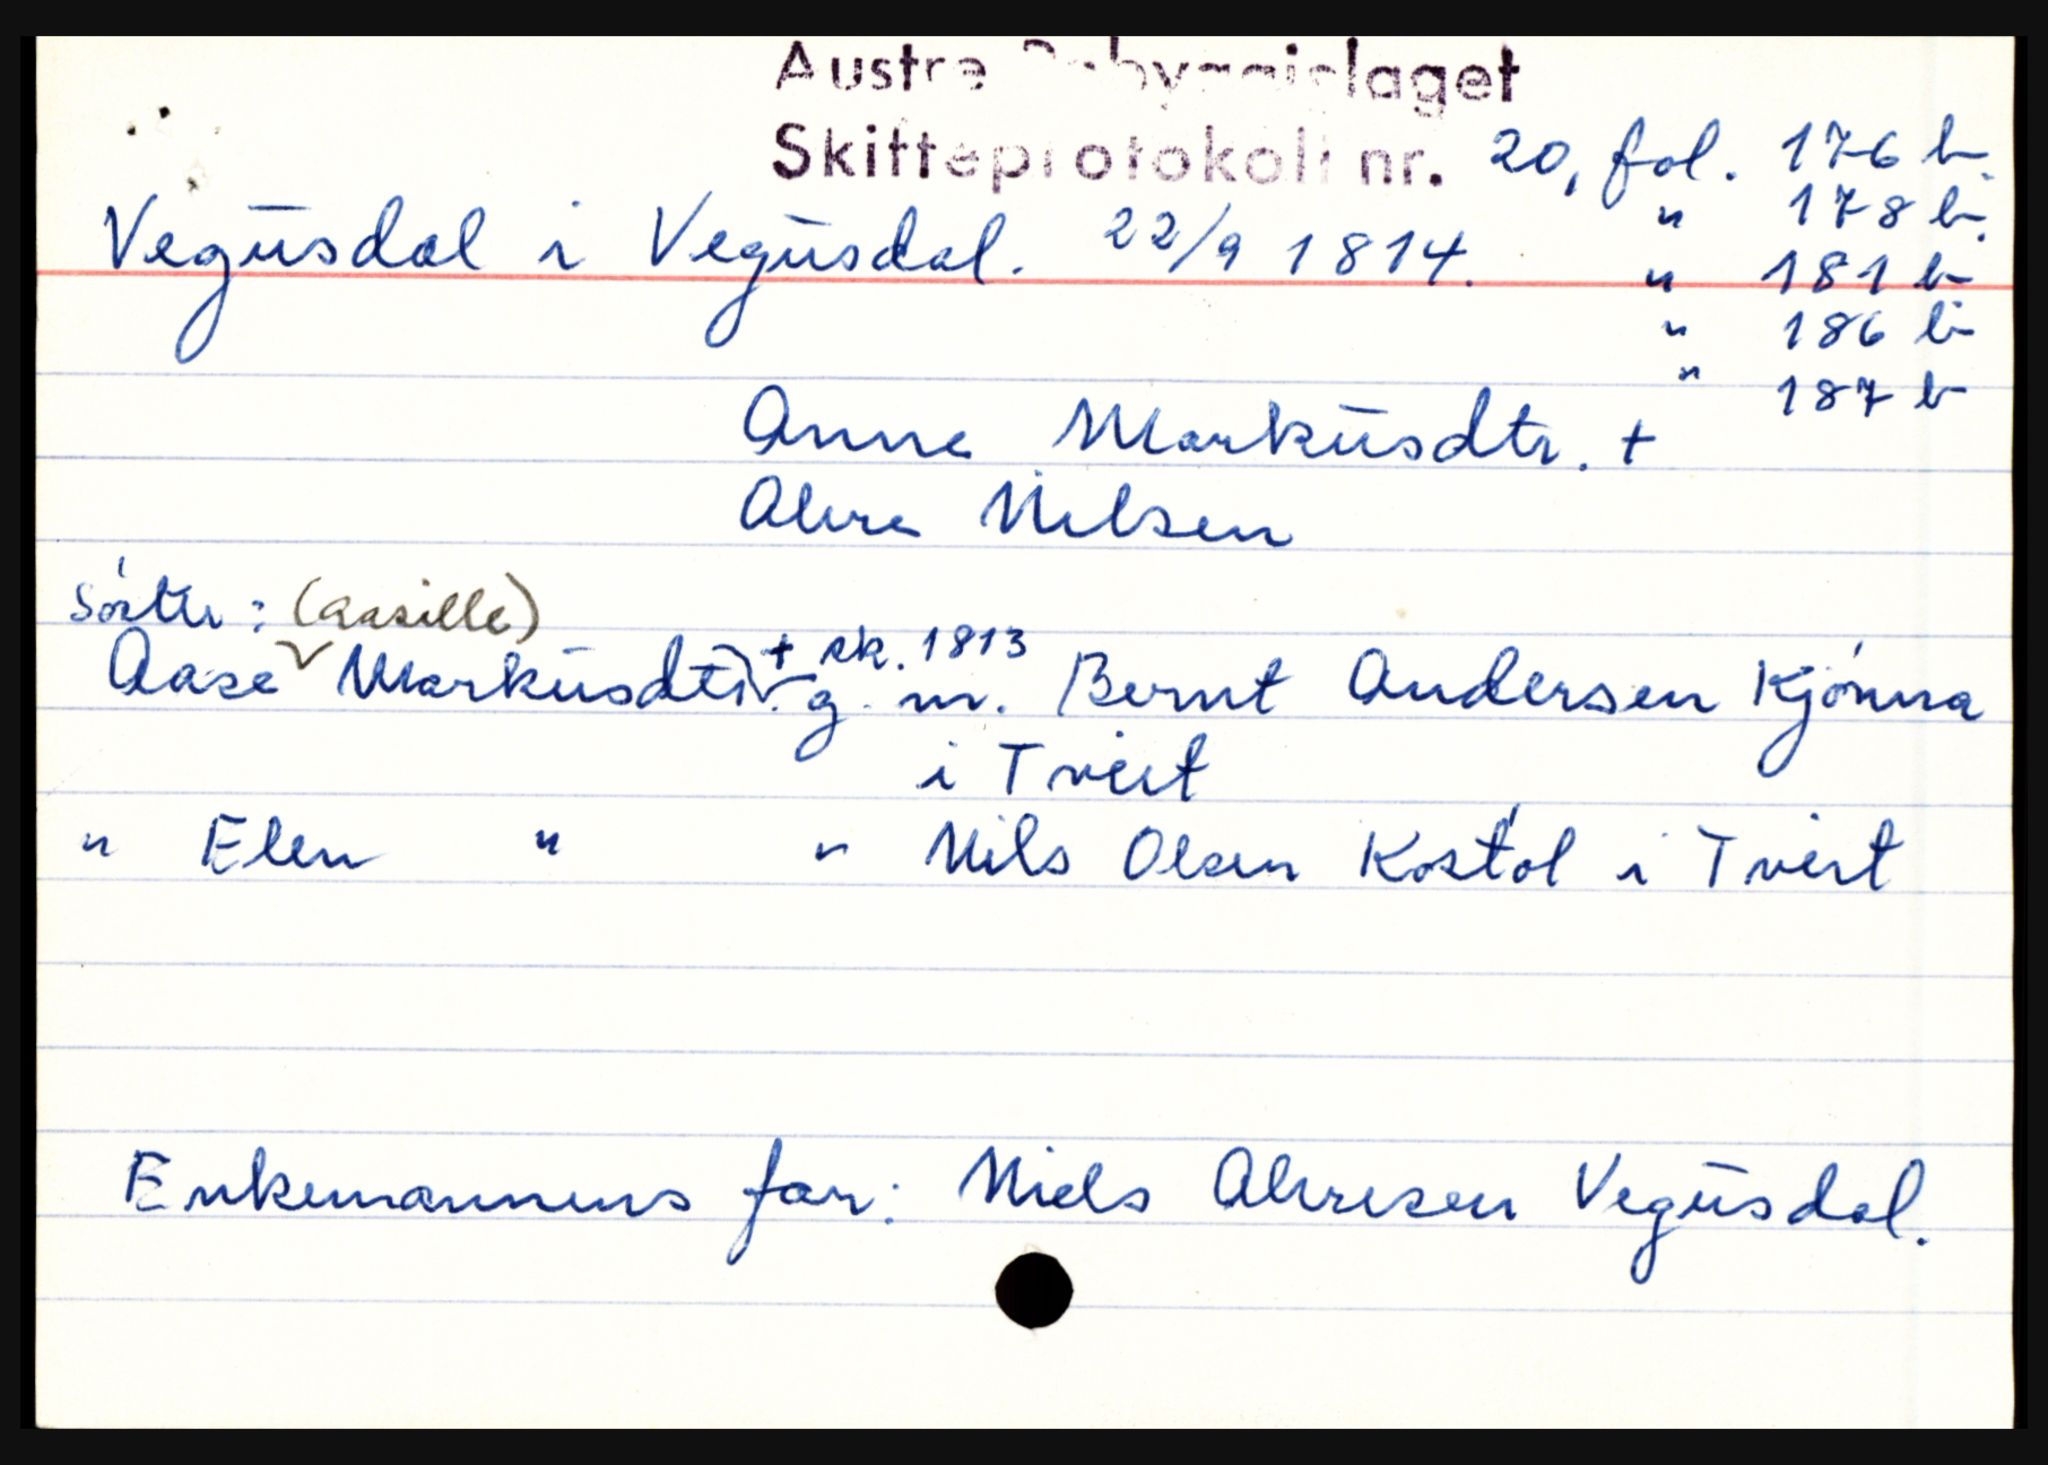 Austre Råbyggjelaget
Skifteprotokoll nr. 20, fol. 176 b.
" 178 b.
Vegusdal i Vegusdal. 22/9 1814.
" 181 b
" 186 b
" 187 b
Anne Markusdtr. +
Alvre Nilsen
(Aasille)
Aase Markusdtr. + sk. 1813 g. m. Bernt Andersen Kjønna
i Tveit
" Elen " " Nils Olsen Kostøl i Tveit
Enkemannens far: Niels Alvresen Vegusdal.